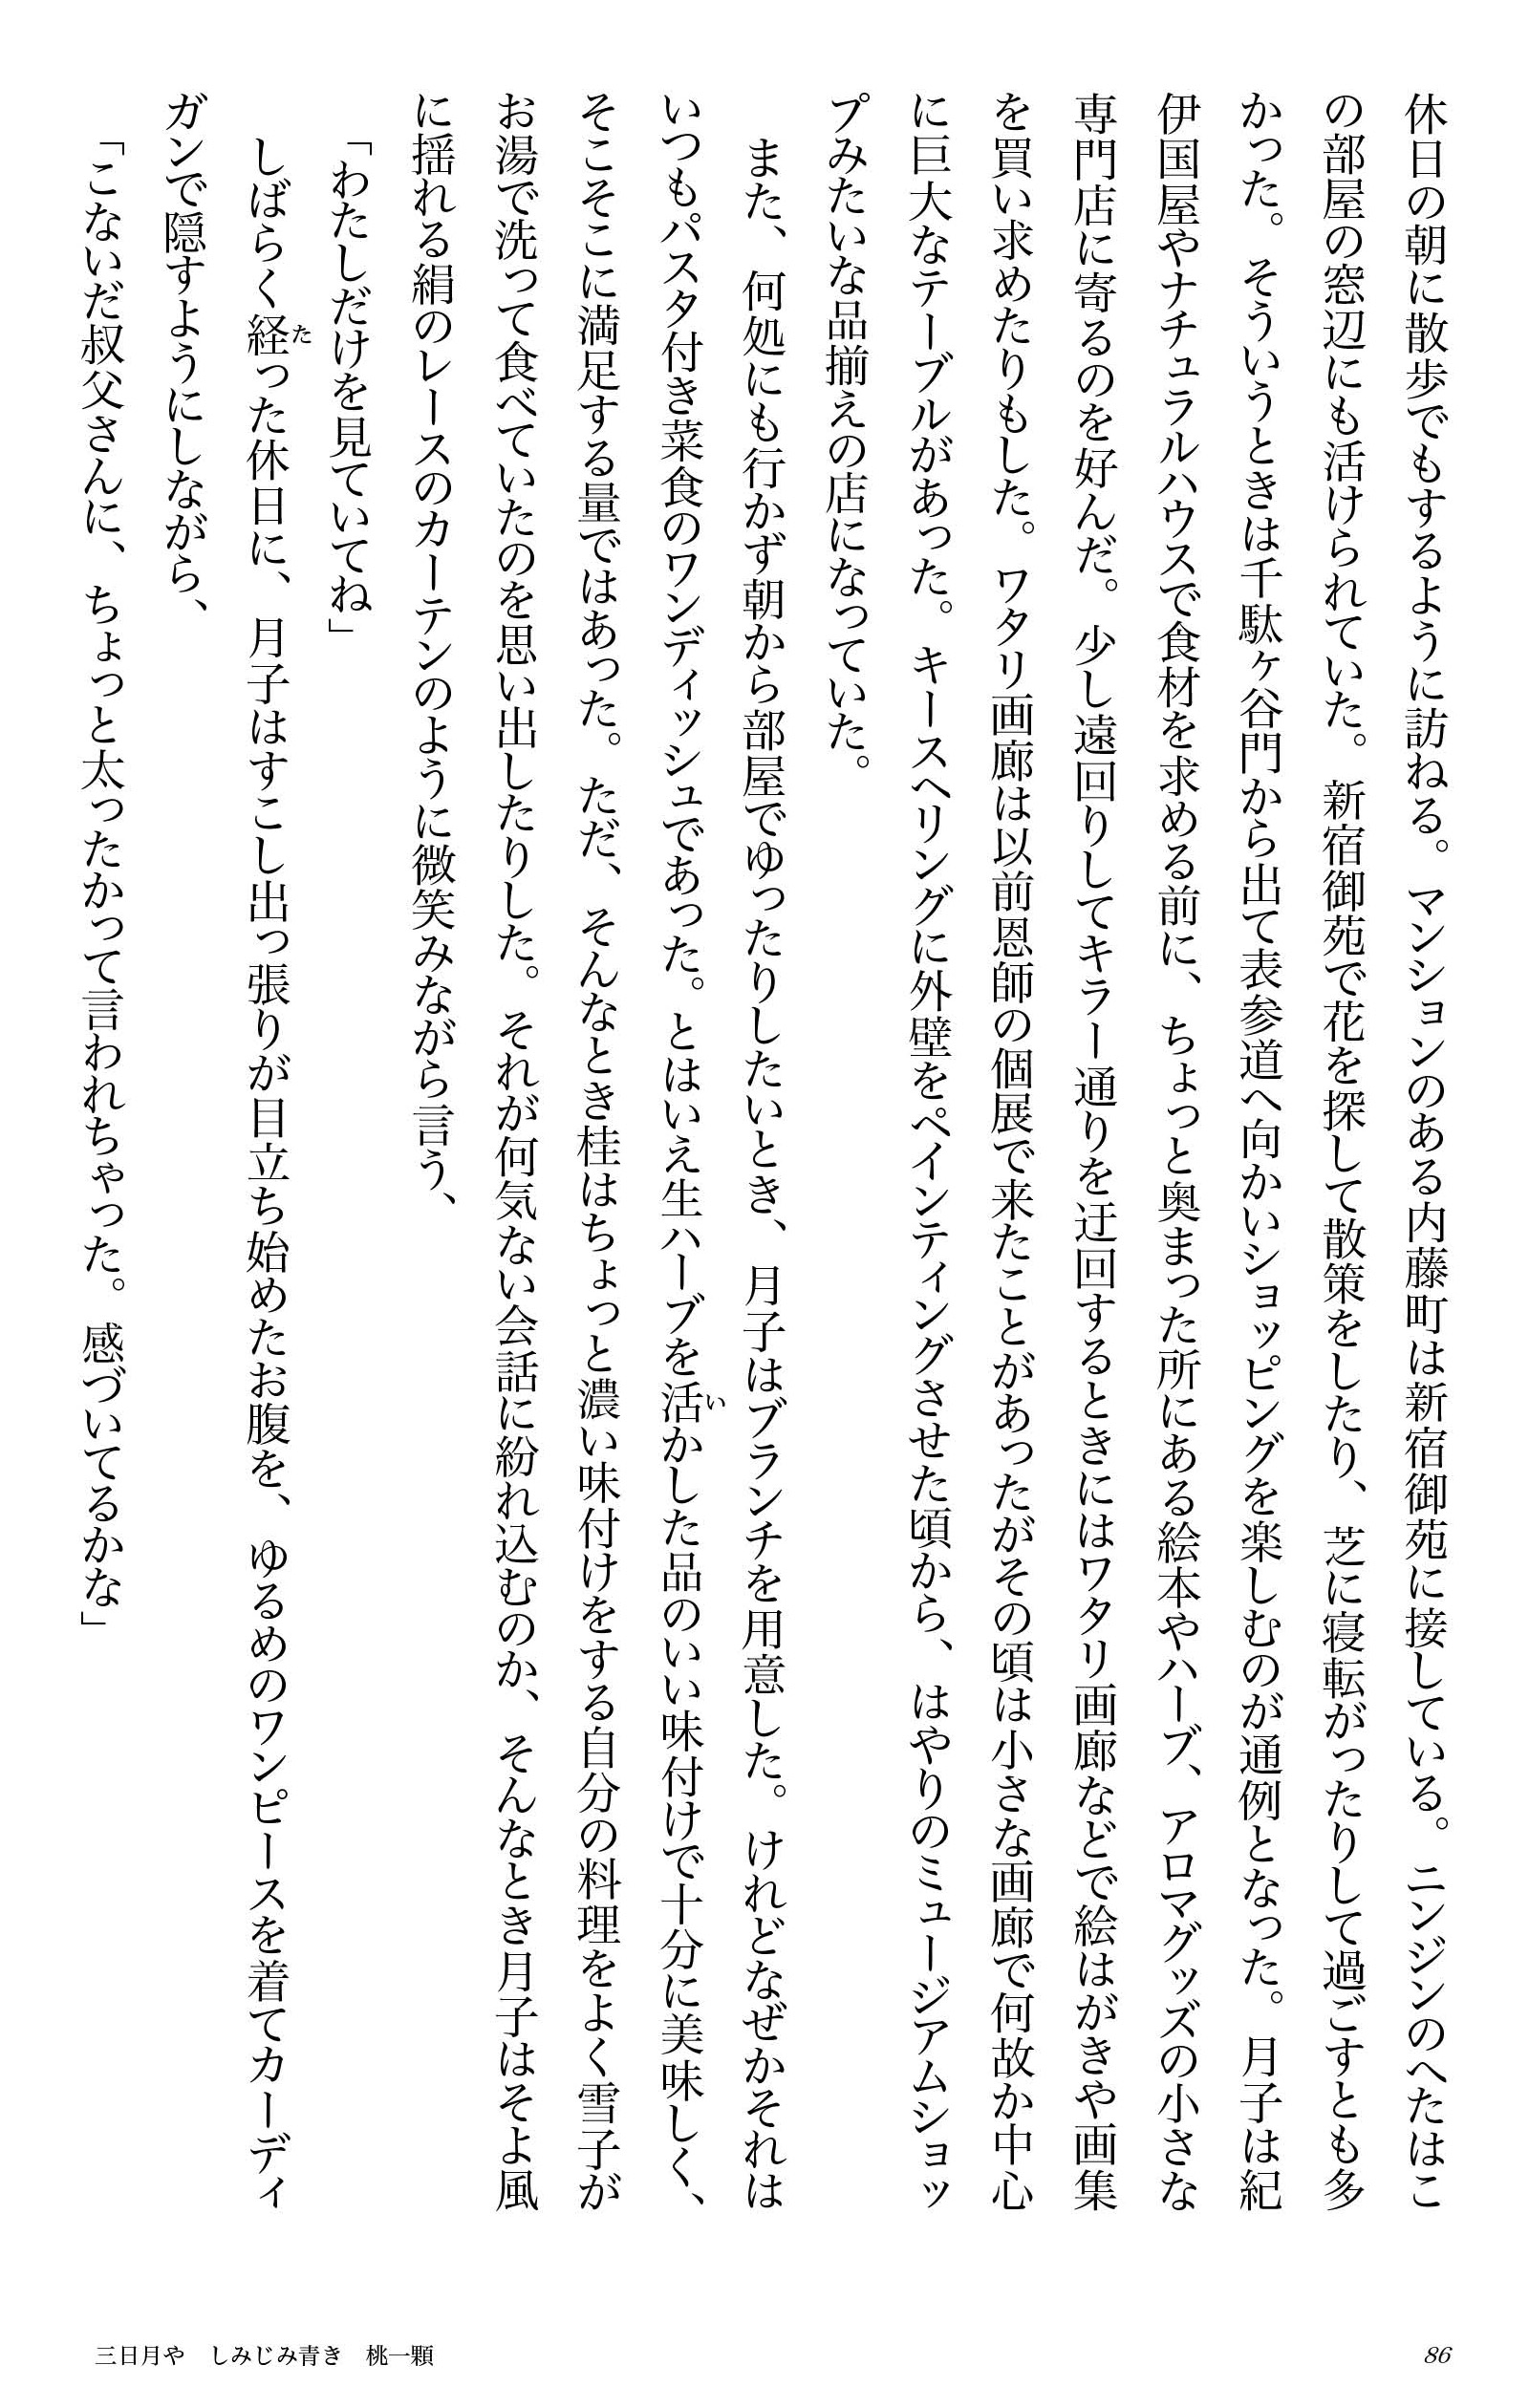 休日の朝に散歩でもするように訪ねる。マンションのある内藤町は新宿御苑に接している。ニンジンのへたはこ
の部屋の窓辺にも活けられていた。新宿御苑で花を探して散策をしたり、芝に寝転がったりして過ごすとも多
かった。そういうときは千駄ヶ谷門から出て表参道へ向かいショッピングを楽しむのが通例となった。月子は紀
伊国屋やナチュラルハウスで食材を求める前に、ちょっと奥まった所にある絵本やハーブ、アロマグッズの小さな
専門店に寄るのを好んだ。少し遠回りしてキラー通りを迂回するときにはワタリ画廊などで絵はがきや画集
を買い求めたりもした。ワタリ画廊は以前恩師の個展で来たことがあったがその頃は小さな画廊で何故か中心
に巨大なテーブルがあった。キースヘリングに外壁をペインティングさせた頃から、はやりのミュージアムショッ
プみたいな品揃えの店になっていた。
また、何処にも行かず朝から部屋でゆったりしたいとき、月子はブランチを用意した。けれどなぜかそれは
いつもパスタ付き菜食のワンディッシュであった。とはいえ生ハーブを活かした品のいい味付けで十分に美味しく、
そこそこに満足する量ではあった。ただ、そんなとき桂はちょっと濃い味付けをする自分の料理をよく雪子が
お湯で洗って食べていたのを思い出したりした。それが何気ない会話に紛れ込むのか、そんなとき月子はそよ風
に揺れる絹のレースのカーテンのように微笑みながら言う、
「わたしだけを見ていてね」
しばらく経った休日に、月子はすこし出っ張りが目立ち始めたお腹を、ゆるめのワンピースを着てカーディ
ガンで隠すようにしながら、
「こないだ叔父さんに、ちょっと太ったかって言われちゃった。感づいてるかな」
三日月や　しみじみ青き　桃一顆
86